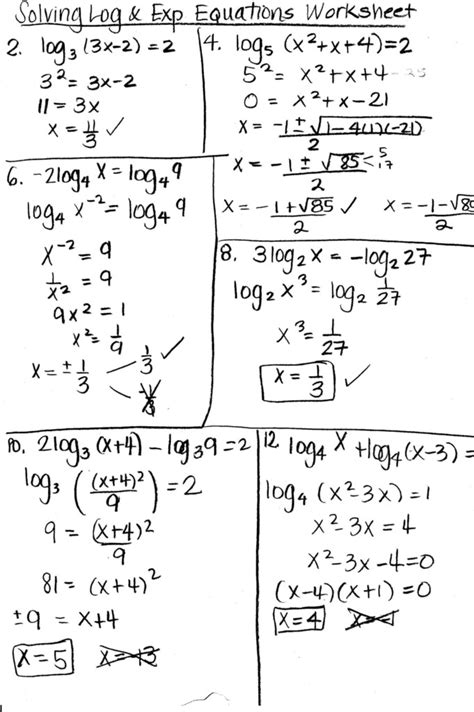 Solving Log & Exp Equations Worksheet
2. log₃ (3x-2) = 2
3² = 3x-2
11 = 3x
x = 11/3 ✓
4. log₅ (x²+x+4)=2
5² = x²+x+4 -25
0 = x²+x-21
x = -1±√1-4(1)(-21)/2
x = -1 ± √85 < 5 17 / 2
x = -1+√85/2 ✓ x = -1-√85/2
6. -2log₄ x = log₄ 9
log₄ x⁻² = log₄ 9
x⁻² = 9
1/x² = 9
9x² = 1
x² = 1/9
x = ± 1/3
1/3 ✓
8. 3log₂ x = -log₂ 27
log₂ x³ = log₂ 1/27
x³ = 1/27
x = 1/3 ✓
10. 2log₃ (x+4) - log₃ 9 = 2
log₃ ((x+4)²/9) = 2
9 = (x+4)²/9
81 = (x+4)²
±9 = x+4
x = 5 x = -13
12 log₄ x + log₄ (x-3) =
log₄ (x²-3x) = 1
x²-3x = 4
x²-3x-4=0
(x-4)(x+1) = 0
x=4 x=-1